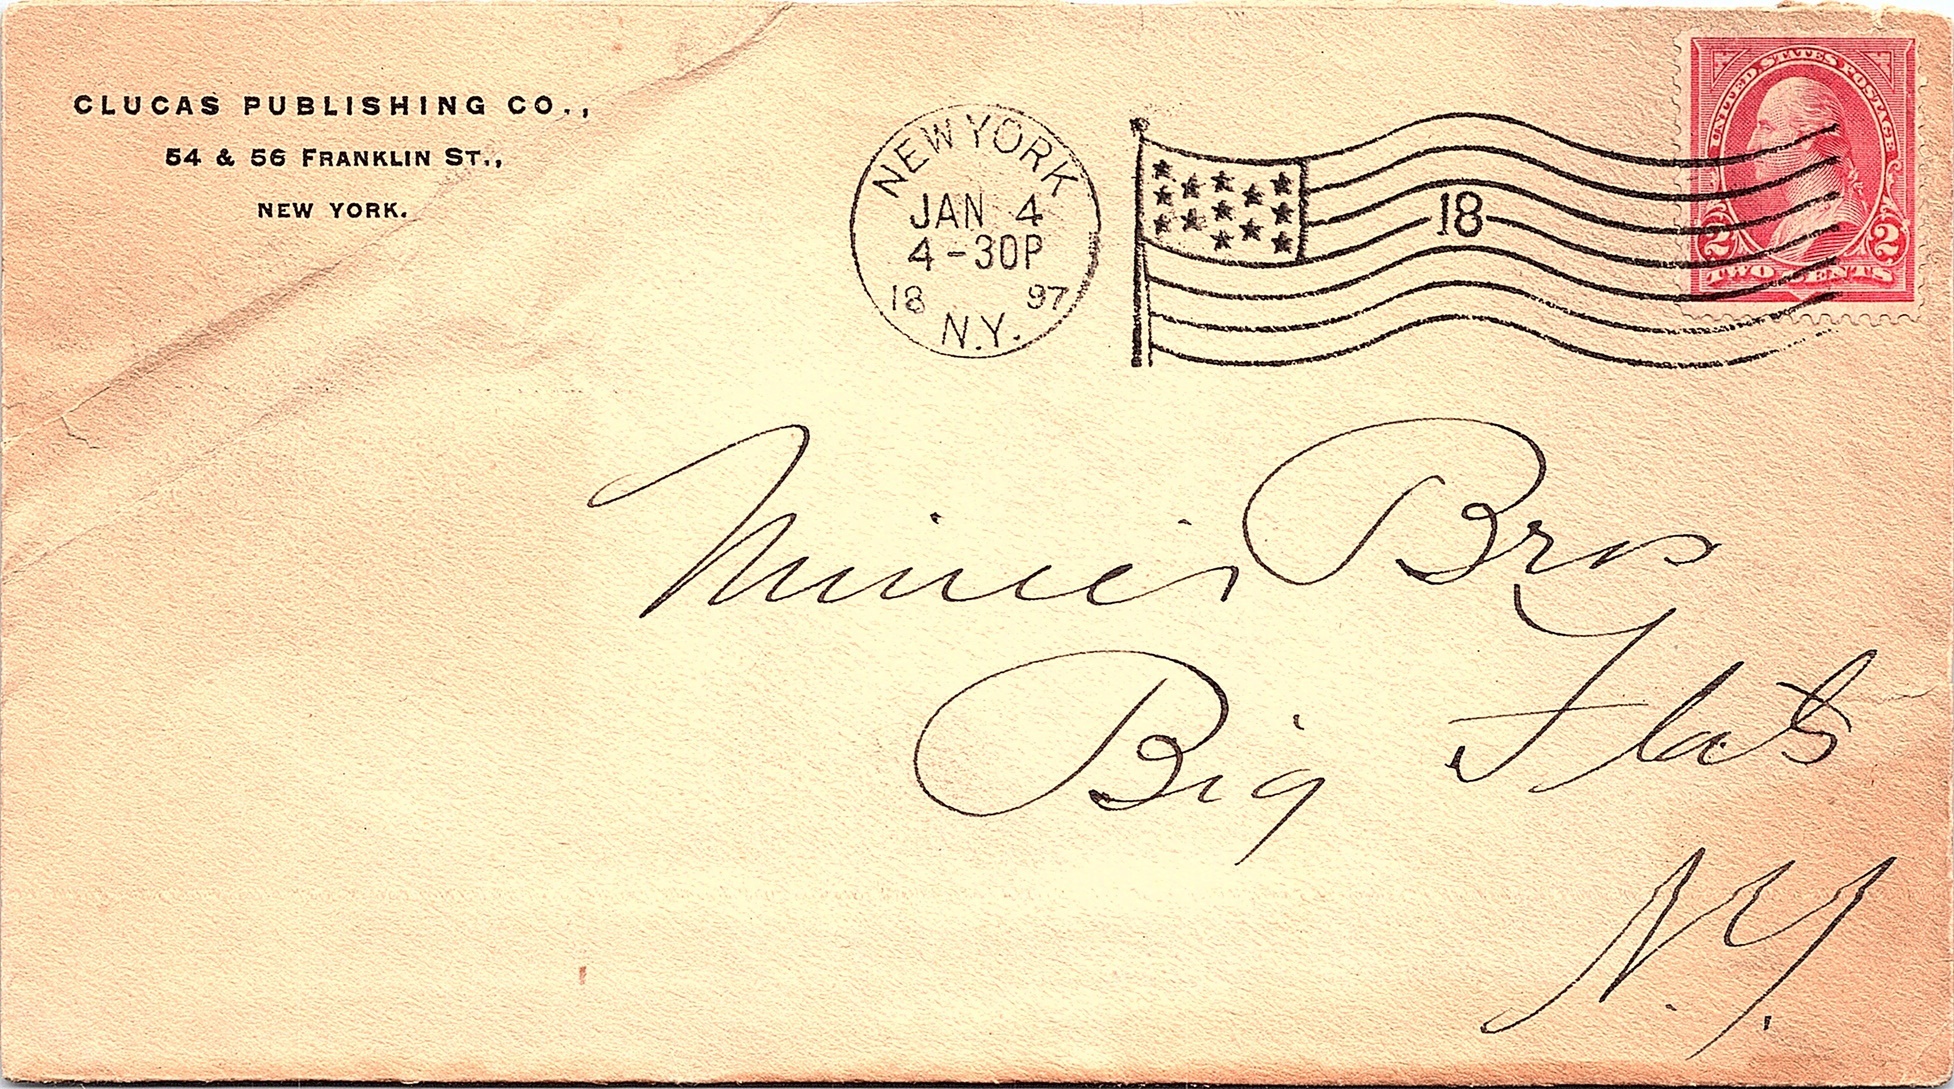 CLUCAS PUBLISHING CO.,
54 & 56 FRANKLIN ST.,
NEW YORK.
NEW YORK
JAN 4
4-30P
18 97
N.Y.
18
UNITED STATES POSTAGE
2 2
TWO CENTS
Minier Bros
Big Flats
N.Y.